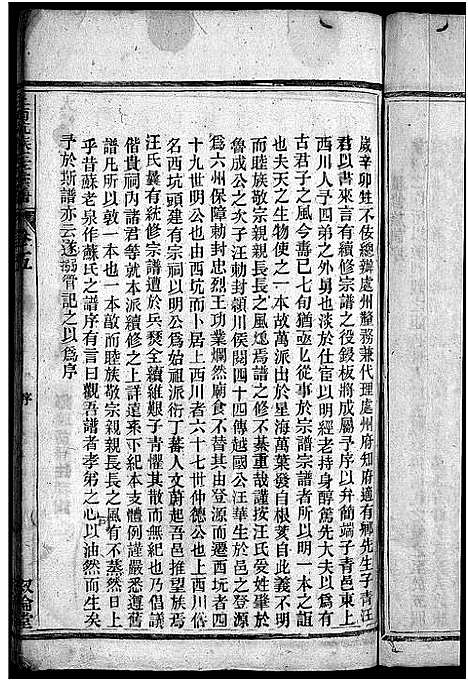 歲辛卯牲不佞總辦處州釐務兼代理處州府知府適有鄉先生子青汪
君以書來言有續修宗譜之役鋟板將成屬予序以弁簡端子青邑東上
西川人予四弟之外舅也淡於仕宦以明經老持身醇篤先大夫以爲有
古君子之風今壽已七旬猶亟亟從事於宗譜宗譜者所以明一本之誼
也夫天之生物使之一本故萬派出於星海萬葉發自根荄自此義不明
而睦族敬宗親親長長之風熄焉譜之修不綦重哉謹按汪氏爰姓肇於
魯成公之次子汪勅封潁川侯閱四十四傳越國公汪華生於邑之登源
爲六州保障勅封忠烈王功業爛然廟食不替其由登源而遷西坑者四
十九世明公也由西坑而卜居上西川者六十七世仲德公也上西川俗
名西坑頭建有宗祠以明公爲始祖派衍丁蕃人文蔚起吾邑推望族焉
汪氏曩有統修宗譜遭於兵燹全續維艱子青懼其散而無紀也乃倡議
偕貴祠內諸君等就本派續修之上詳遠來下紀本支體例謹嚴悉遵舊
譜凡所以敦一本也一本敦而睦族敬宗親親長長之風有不蒸然日上
乎昔蘇老泉作蘇氏之譜序有言曰觀吾譜者孝弟之心以油然而生矣
予於斯譜亦云遂搦管記之以爲序
卷五
序
敘倫堂